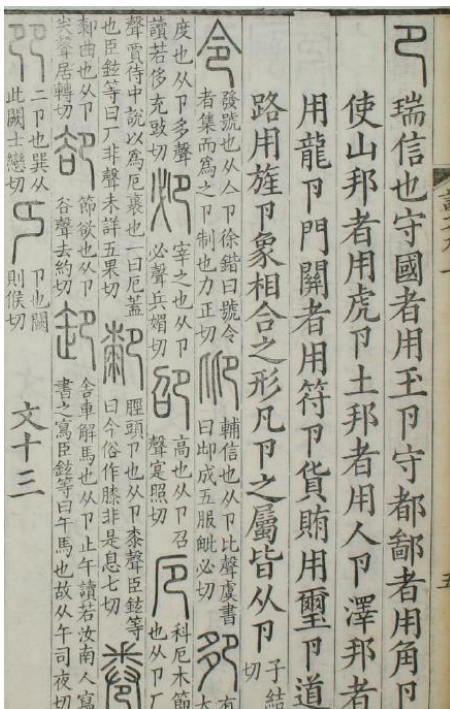 卩 瑞信也守國者用玉卩守都鄙者用角卩
使山邦者用虎卩土邦者用人卩澤邦者
用龍卩門關者用符卩貨賄用璽卩道
路用旌卩象相合之形凡卩之屬皆从卩 子結切
令 發號也从亼卩徐鍇曰號令者集而爲之卩制也力正切 𠨒 輔信也从卩比聲虞書曰𠨒成五服毗必切 𠨘 有大
度也从卩多聲讀若侈充豉切 𠨚 宰之也从卩必聲兵媚切 卲 高也从卩召聲寔照切 厄 科厄木節也从卩厂
聲賈侍中說以爲厄裹也一曰厄蓋也臣鉉等曰厂非聲未詳五果切 厀 脛頭卩也从卩桼聲臣鉉等曰今俗作膝非是息七切 卷
厀曲也从卩𢍏聲居轉切 卻 節欲也从卩谷聲去約切 卸 舍車解馬也从卩止午讀若汝南人寫書之寫臣鉉等曰午馬也故从午司夜切
𠨎 二卩也巽从此闕士戀切 𠨍 卩也闕則候切 文十三